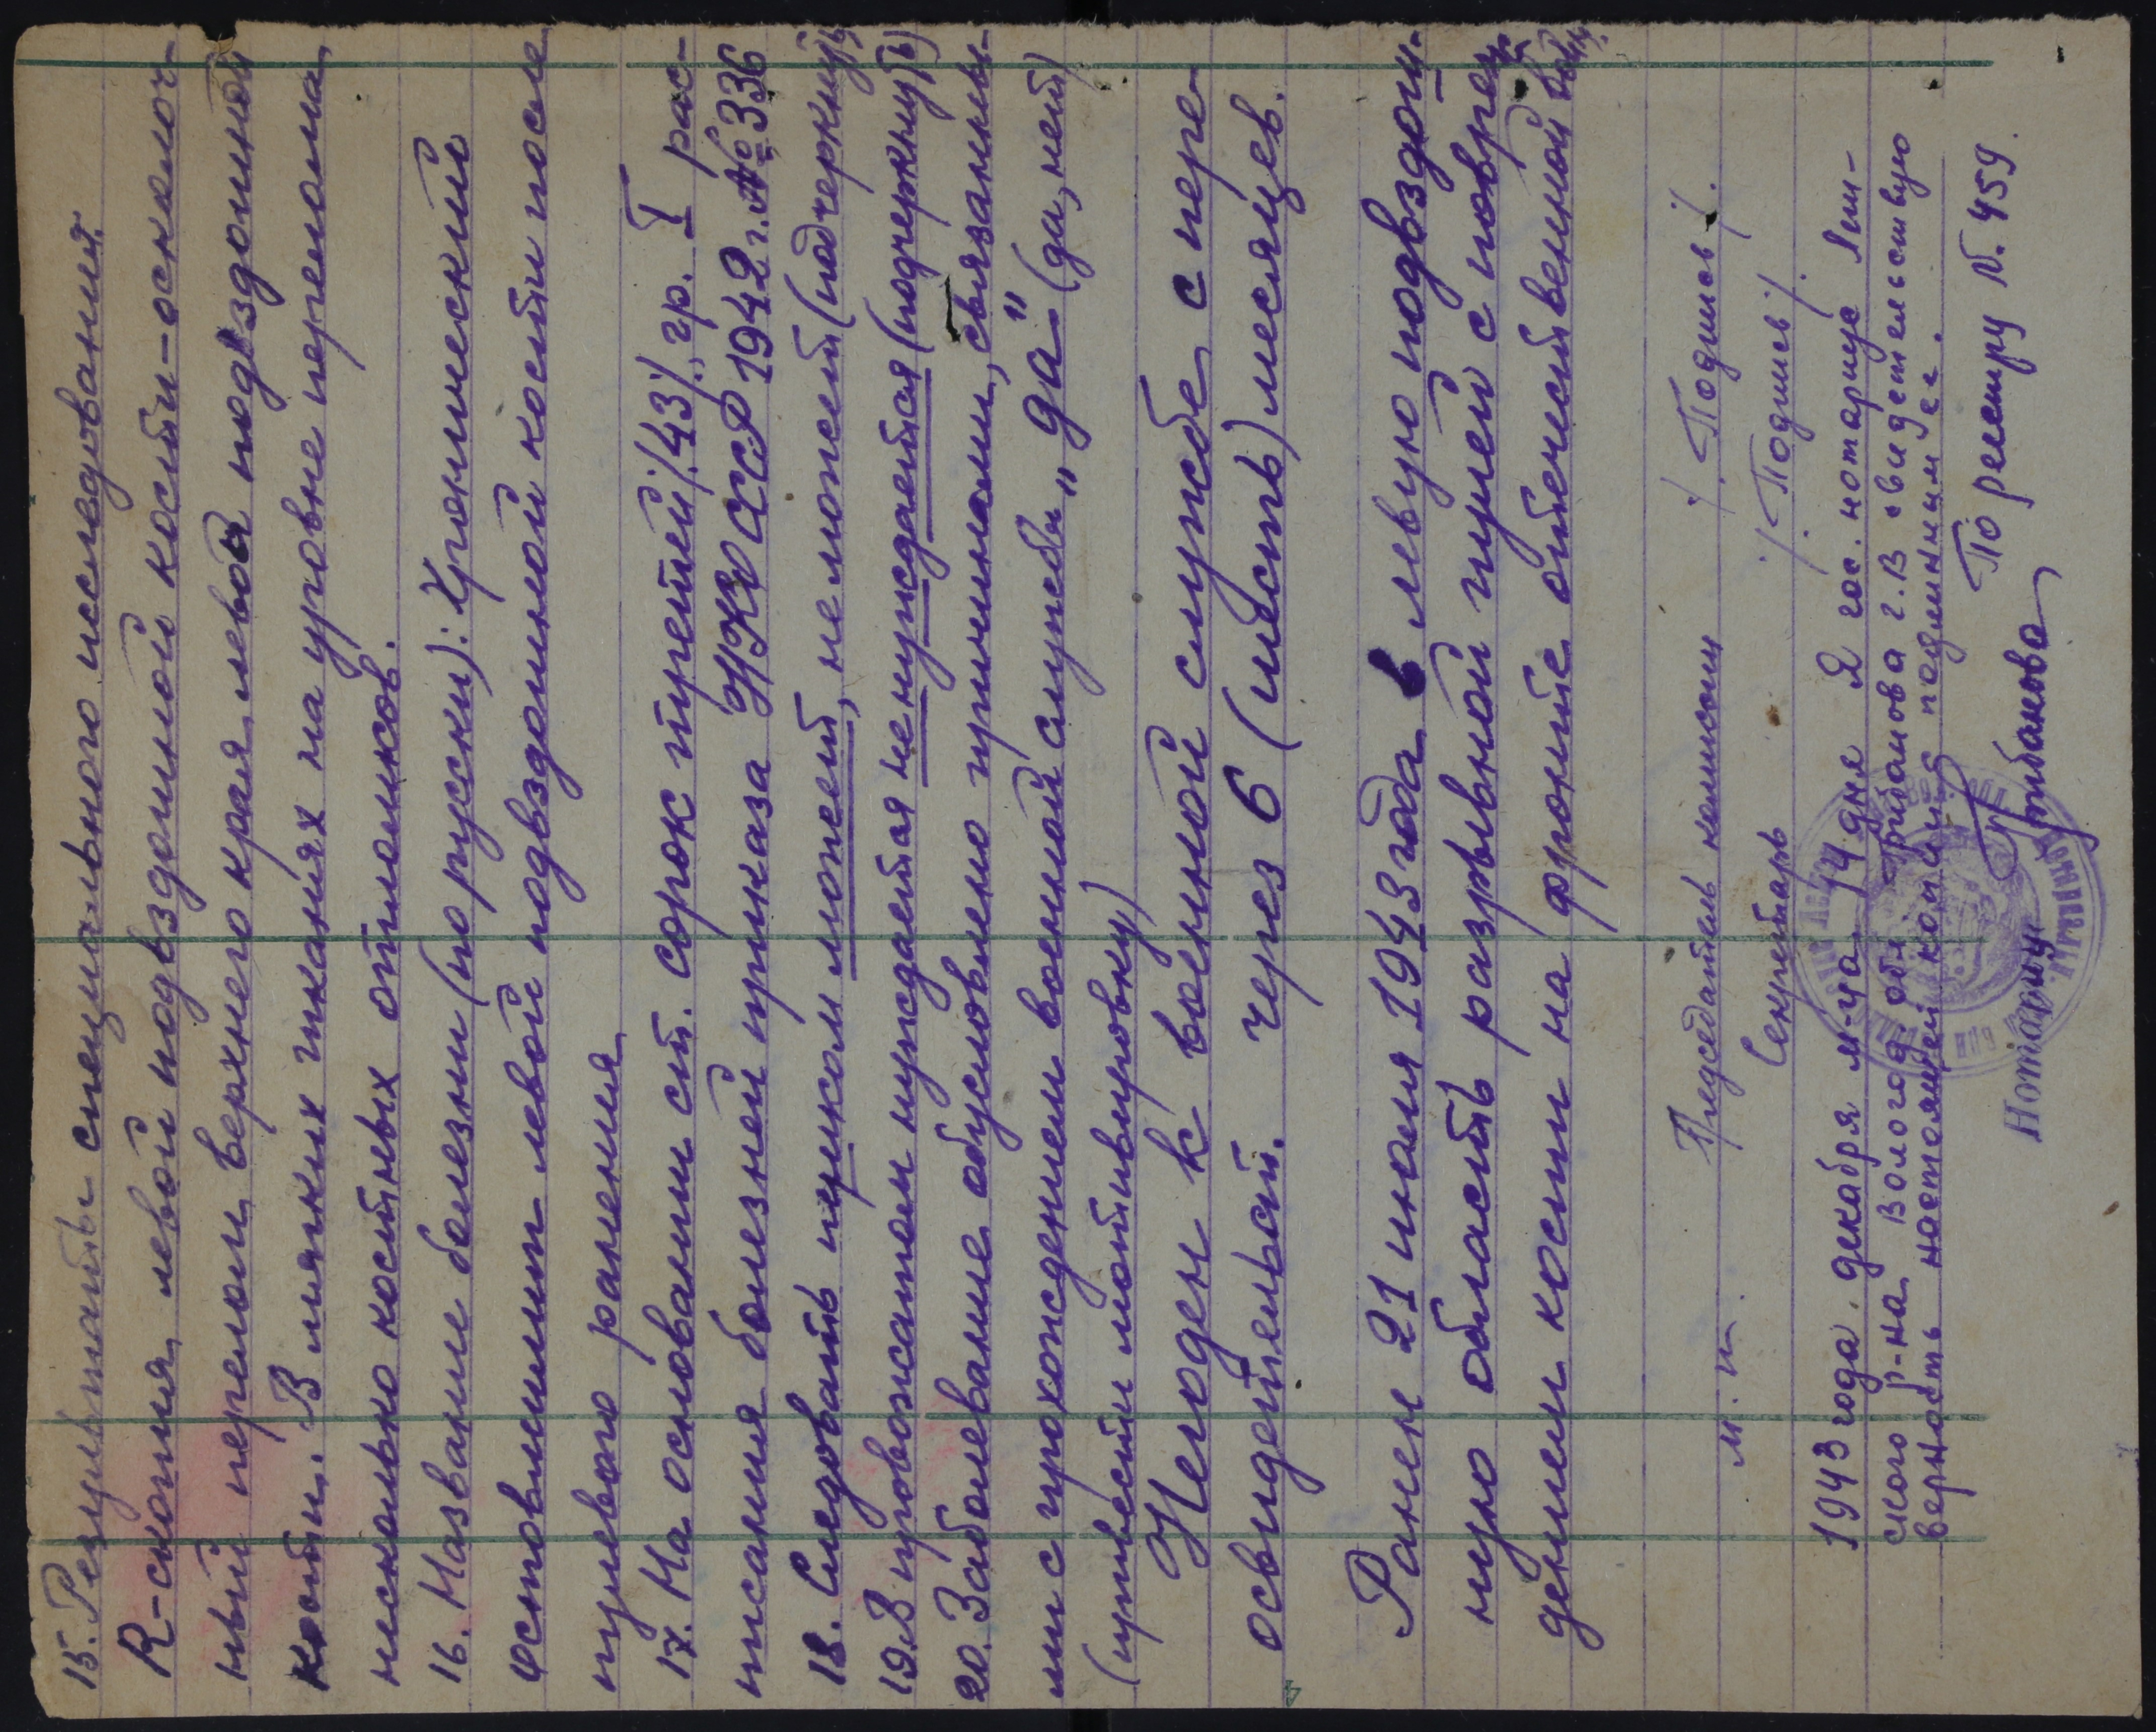 15. Результаты специального исследования.
R-скопия левой подвздошной кости-осколоч-
ный перелом верхнего края левой подвздошной
кости. В мягких тканях на уровне перелома
несколько костных отломков.
16. Название болезни (по русски): Хронический
остеомиелит левой подвздошной кости после
пулевого ранения
17. На основании ст. сорок третьей /43/, гр. I рас-
писания болезней приказа НКО СССР 1942 г. № 336
18. Следовать пешком может, не может (подчеркнуть)
19. В провожатом нуждается не нуждается (подчеркнуть)
20. Заболевание обусловлено причинами, связанны-
ми с прохождением военной службы „да" (да, нет)
(привести мотивировку)
Негоден к военной службе с пере-
освидетельст. через 6 (шесть) месяцев.
Ранен 21 июля 1943 года в левую подвздош-
ную область разрывной пулей с повреж-
дением кости на фронте отечественной войны.
Председатель комиссии /Подпись/.
м. п. Секретарь /Подпись/.
1943 года. декабря м-ца 14 дня Я гос. нотариус
ского р-на Вологод обл Грибанова г. В свидетельствую
верность настоящей копии с подлинным ее.
По реестру N. 459.
Нотариус Грибанова